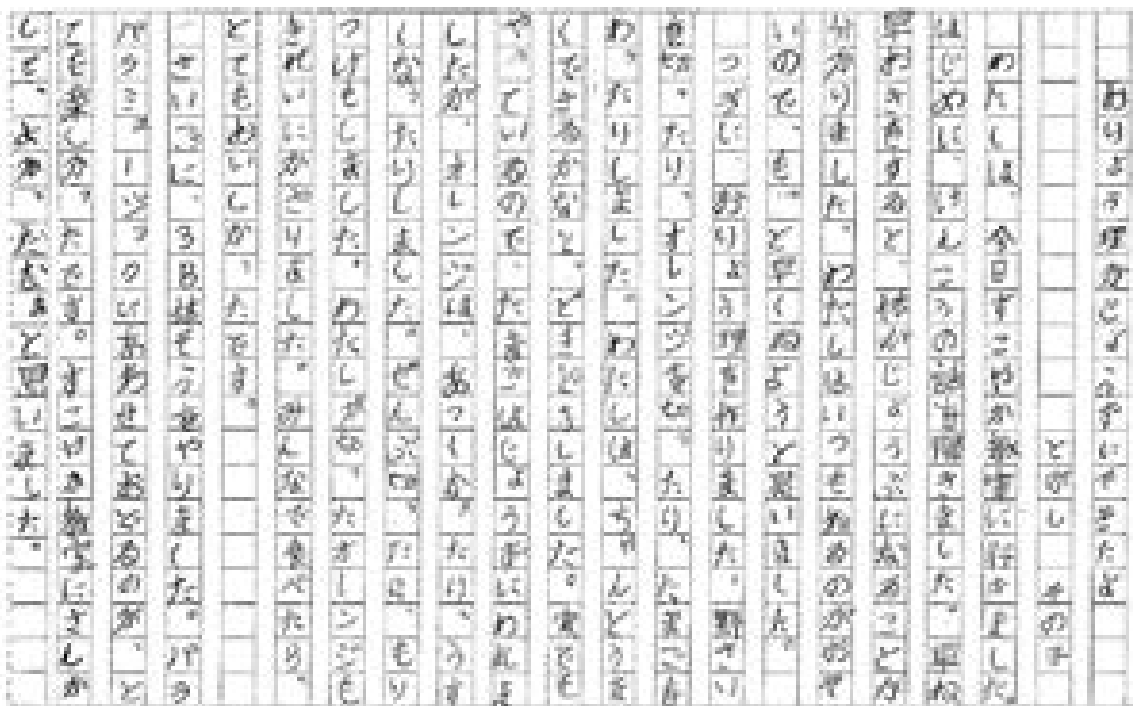 おりょう理がじょうずにできたよ
とがし
わたしは、今日すこやか教室に行きました。
はじめに、けんこうの話を聞きました。早ね
早おきをすると、体がじょうぶになることが
分かりました。わたしはいつもねるのがおそ
いので、もっと早くねようと思いました。
つぎに、おりょう理を作りました。野さい
を切ったり、オレンジを切ったり、たまごを
わったりしました。わたしは、ちゃんとうま
くできるかなと、どきどきしました。
ているので、たまごはじょうずにわれま
したが、オレンジは、あつくなったり、うす
くなったりしました。ぜんぶ切ったら、もり
つけをしました。わたしが切ったオレンジも
きれいにかざりました。みんなで食べたら、
とてもおいしかったです。
さいごに、3B体そうをやりました。
あわせておどるのが、と
ても楽しかったです。すこやか教室にさんか
して、よかったなあと思いました。